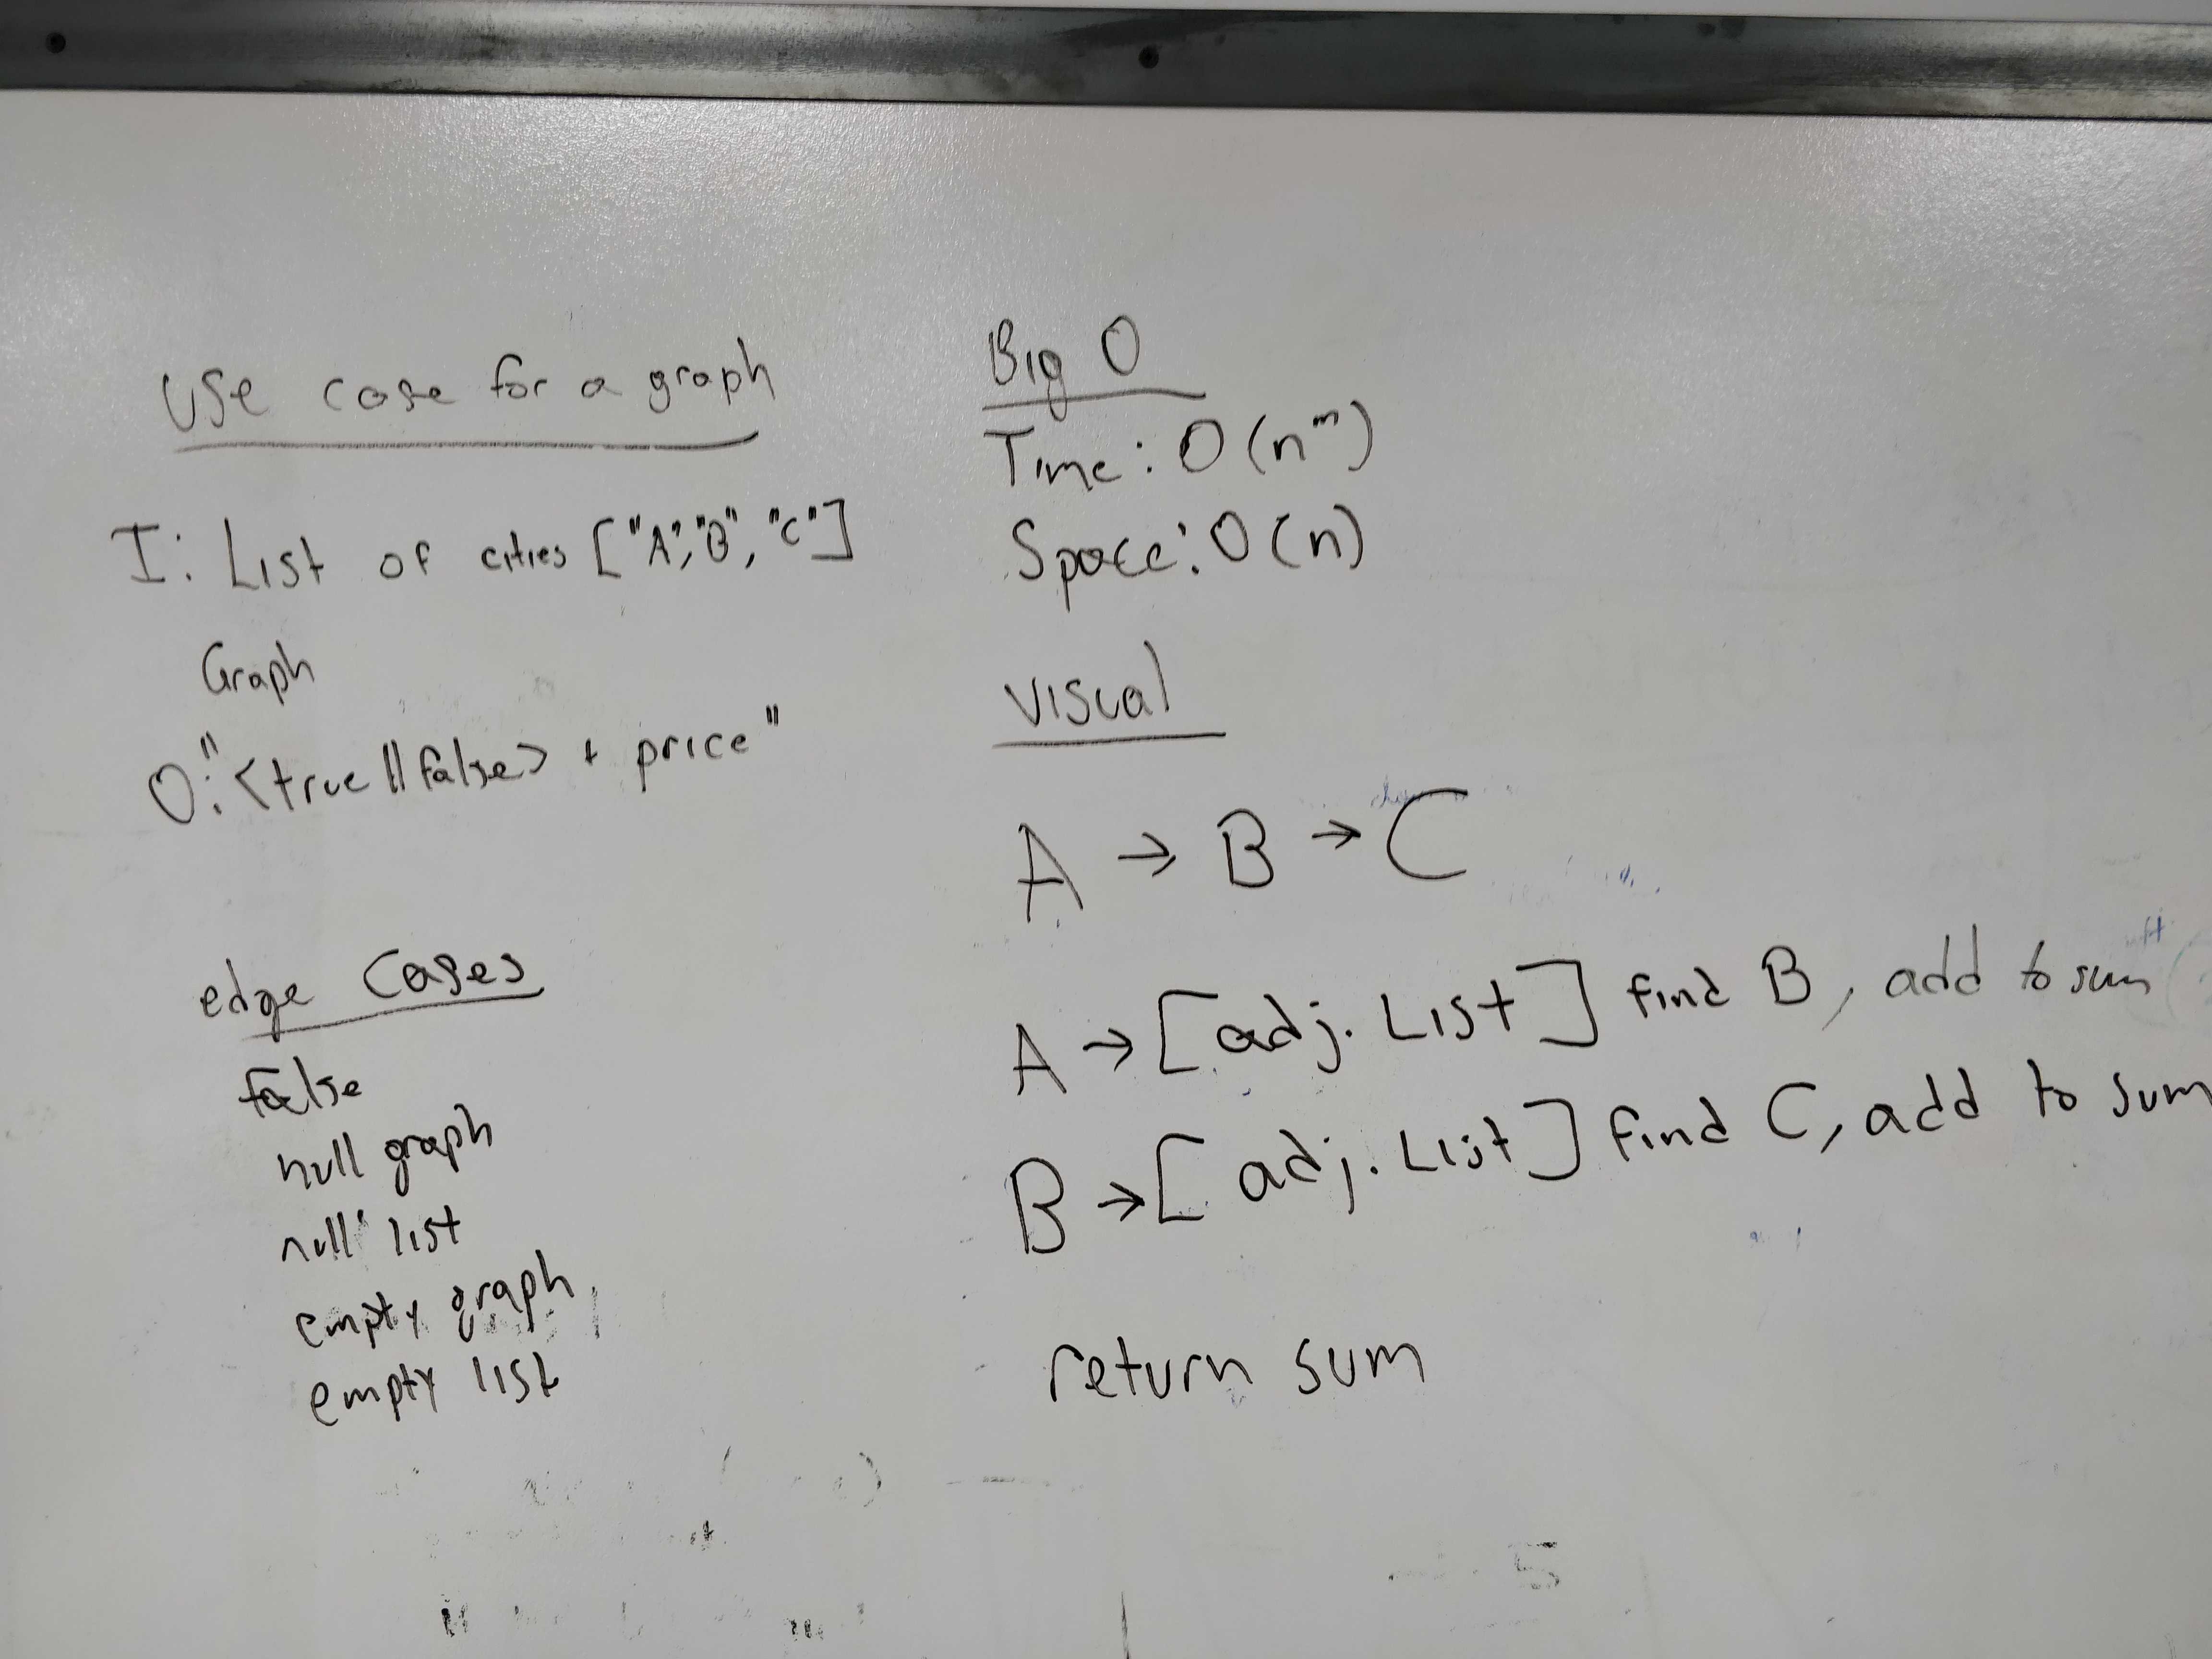 Use case for a graph
I: List of cities ["A", "B", "C"]
Graph
O: "<true||false> + price"
edge cases
false
null graph
null list
empty graph
empty list
Big O
Time: O(n^m)
Space: O(n)
Visual
A → B → C
A → [adj. List] find B, add to sum
B → [adj. List] find C, add to sum
return sum